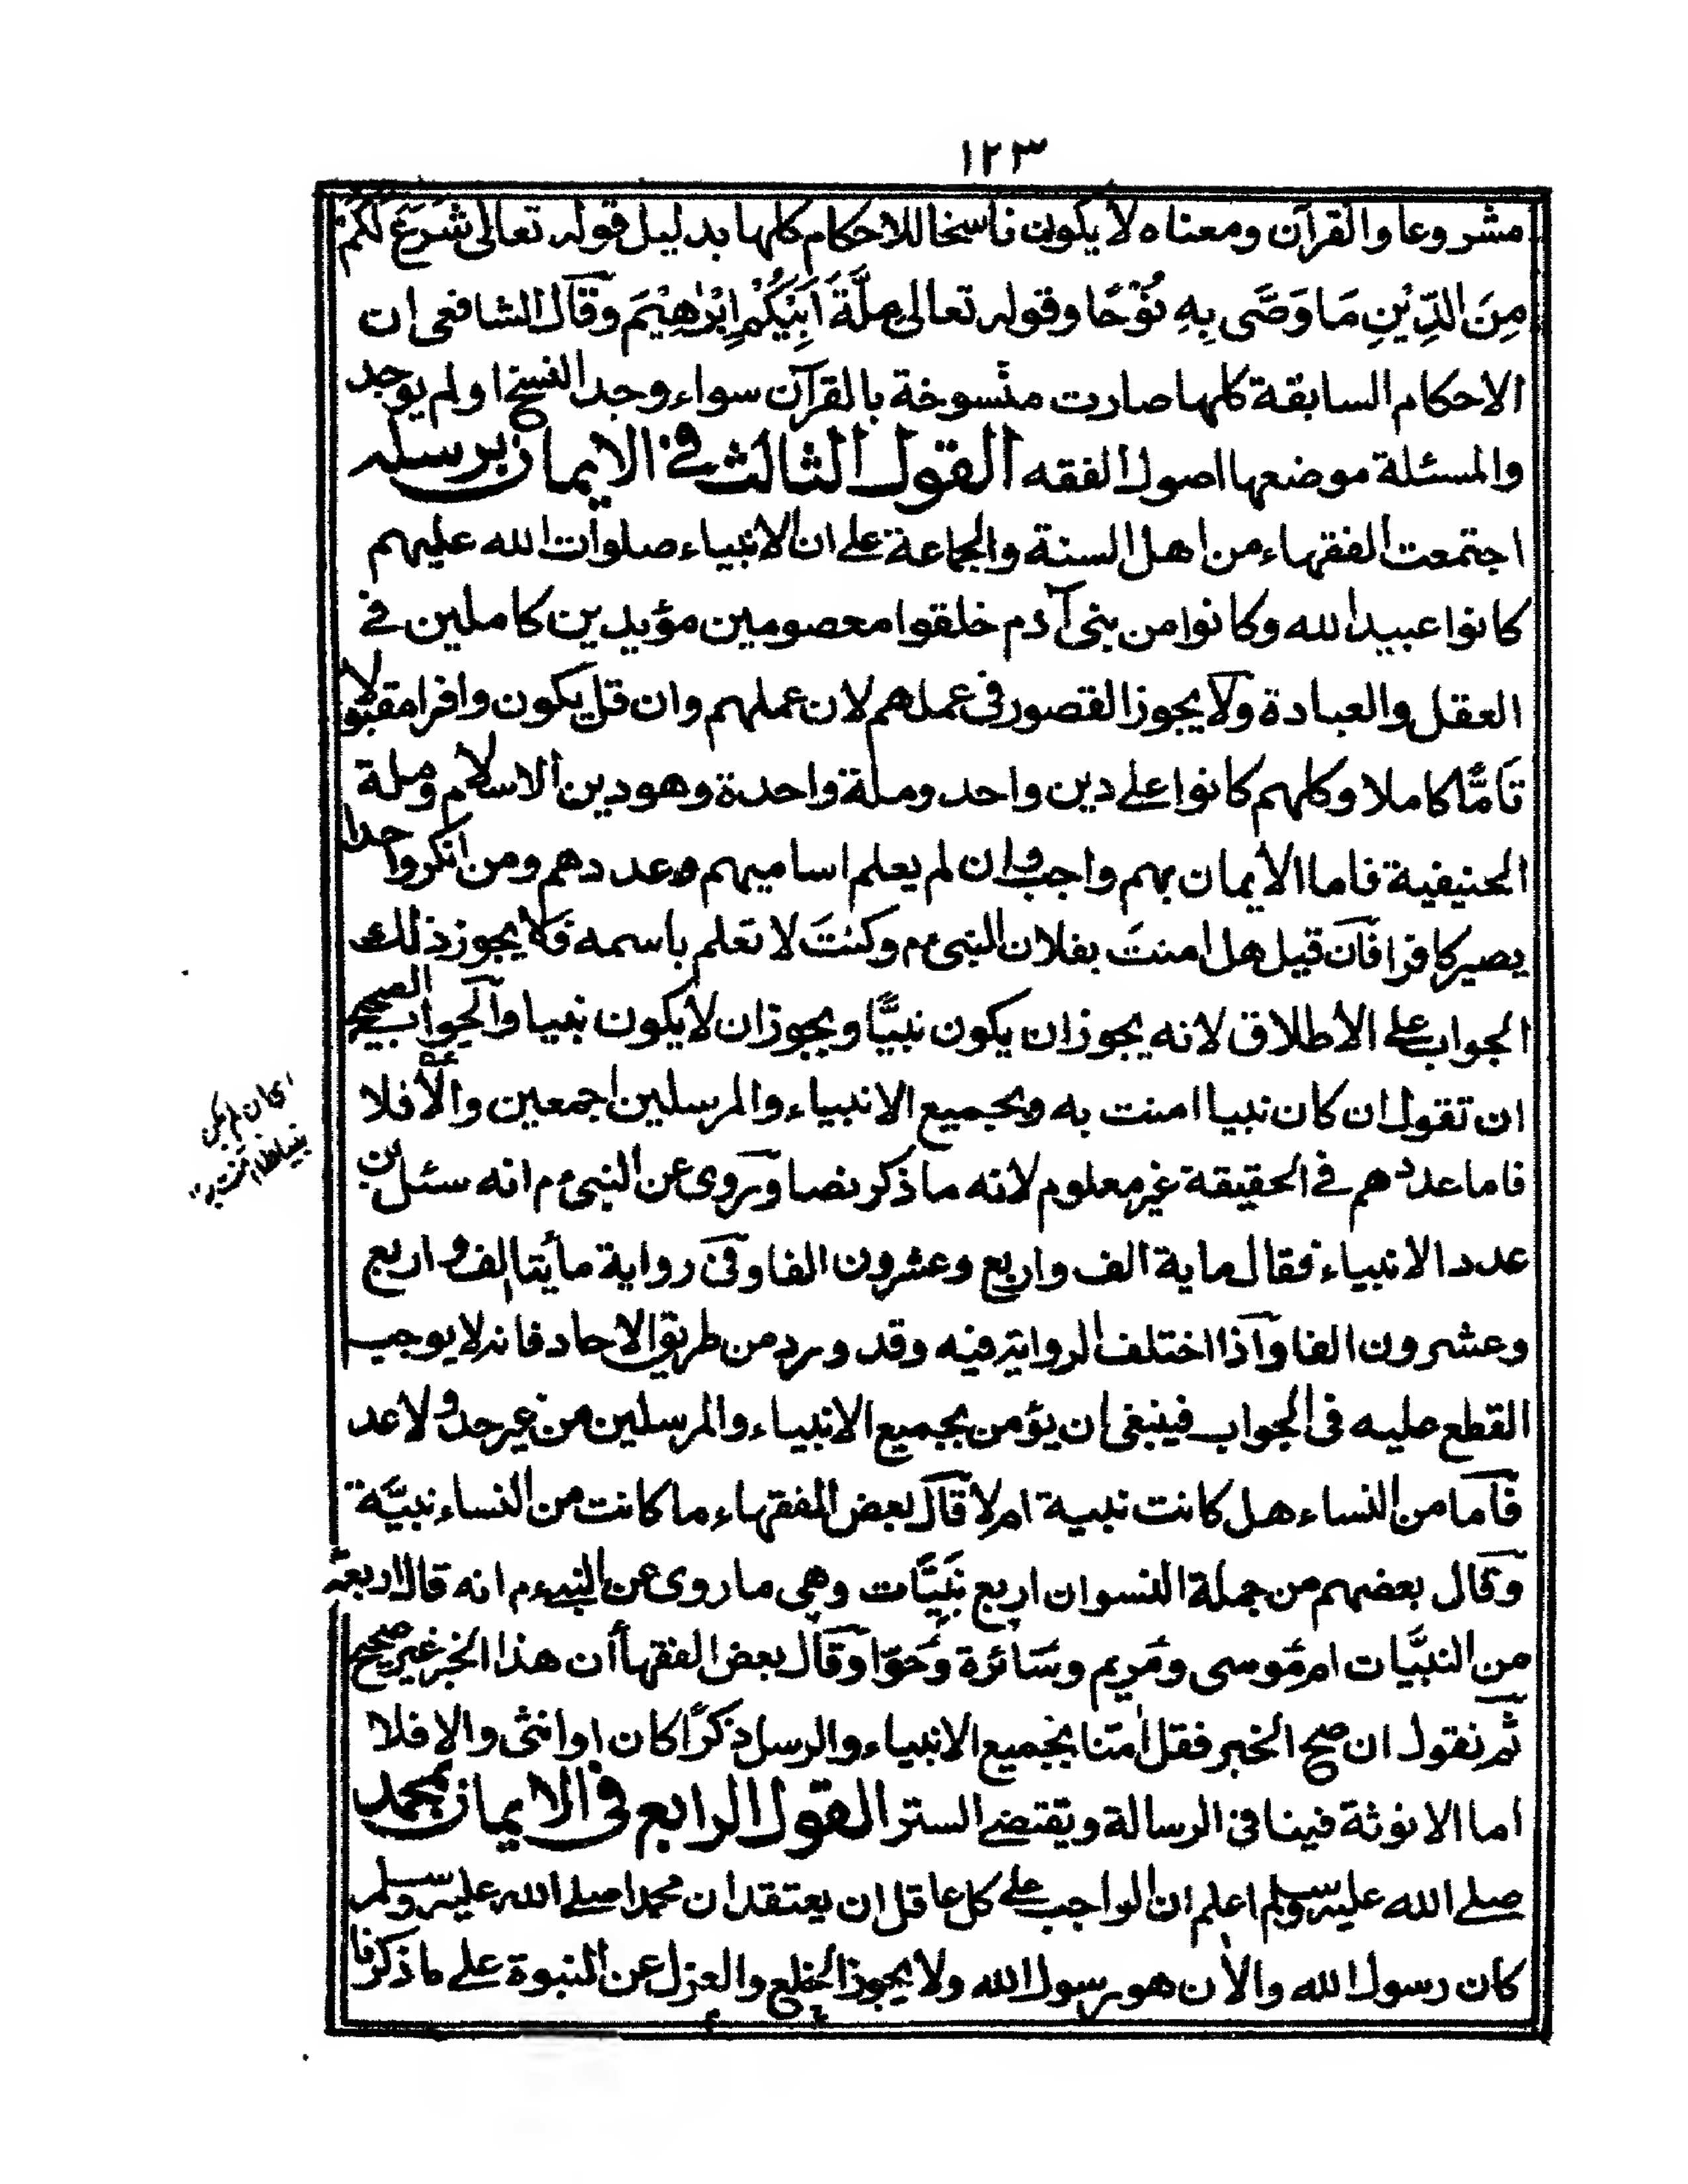 ١٢٣
مشروعا والقرآن ومعناه لا يكون ناسخا للاحكام كلها بدليل قوله تعالى شَرَعَ لَكُمْ
مِنَ الدِّيْنِ مَا وَصَّى بِهِ نُوْحًا وقوله تعالى مِلَّةَ اَبِيْكُمْ اِبْرٰهِيْمَ وقال الشافعى ان
الاحكام السابقة كلها صارت منسوخة بالقرآن سواء وجد النسخ او لم يوجد
والمسئلة موضعها اصول الفقه القول الثالث فى الايمان برسله
اجتمعت الفقهاء من اهل السنة والجماعة على ان الانبياء صلوات الله عليهم
كانوا عبيد الله وكانوا من بنى آدم خلقوا معصومين مؤيدين كاملين فى
العقل والعبادة ولا يجوز القصور فى عملهم لان عملهم وان قل يكون وافرا مقبولا
تَامًّا كاملا وكلهم كانوا على دين واحد وملة واحدة وهو دين الاسلام وملة
الحنيفية فاما الايمان بهم واجب وان لم يعلم اساميهم وعددهم ومن انكر واحدا
يصير كافرا فان قيل هل امنتَ بفلان النبى ء م وكنتَ لا تعلم باسمه فلا يجوز ذلك
الجواب على الاطلاق لانه يجوز ان يكون نبيًّا ويجوز ان لا يكون نبيا والجواب الصحيح
ان تقول ان كان نبيا امنت به وبجميع الانبياء والمرسلين اجمعين والا فلا
اى ان لم يكن نبيا
فاما عددهم فى الحقيقة غير معلوم لانه ما ذكر نصا وروى عن النبى ء م انه سئل عن
عدد الانبياء فقال ماية الف واربع وعشرون الفا وفى رواية مأيتا الف واربع
وعشرون الفا واذا اختلف الرواية فيه وقد ورد من طريق الاحاد فانه لا يوجب
القطع عليه فى الجواب فينبغى ان يؤمن بجميع الانبياء والمرسلين من غير حد ولا عد
فاما من النساء هل كانت نبية ام لا قال بعض الفقهاء ما كانت من النساء نبيَّة
وقال بعضهم من جملة النسوان اربع نَبِيَّات وهى ما روى عن النبى ء م انه قال اربعة
من النبيَّات ام مُوسى ومَريم وسَائرة وحَوّا وقال بعض الفقهأ أن هذا الخبر غير صحيح
ثم نقول ان صح الخبر فقل اٰمَنّا بجميع الانبياء والرسل ذكرًا كان او انثى والا فلا
اما الانوثة فينا فى الرسالة ويقتضى الستر القول الرابع فى الايمان بمحمد
صلى الله عليه وسلم اعلم ان الواجب على كل عاقل ان يعتقد ان محمدا صلى الله عليه وسلم
كان رسول الله والاٰن هو رسول الله ولا يجوز الخلع والعزل عن النبوة على ما ذكرنا